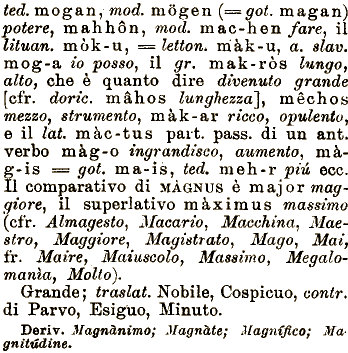 ted. mogan, mod. mögen (= got. magan)
potere, mahhôn, mod. mac-hen fare, il
lituan. mòk-u, = letton. màk-u, a. slav.
mog-a io posso, il gr. mak-ròs lungo,
alto, che è quanto dire divenuto grande
[cfr. doric. mâhos lunghezza], mêchos
mezzo, strumento, màk-ar ricco, opulento,
e il lat. màc-tus part. pass. di un ant.
verbo màg-o ingrandisco, aumento, mà-
g-is = got. ma-is, ted. meh-r piú ecc.
Il comparativo di MÀGNUS è major mag-
giore, il superlativo màximus massimo
(cfr. Almagesto, Macario, Macchina, Mae-
stro, Maggiore, Magistrato, Mago, Mai,
fr. Maire, Maiuscolo, Massimo, Megalo-
manìa, Molto).
Grande; traslat. Nobile, Cospicuo, contr.
di Parvo, Esiguo, Minuto.
Deriv. Magnànimo; Magnàte; Magnífico; Ma-
gnitúdine.